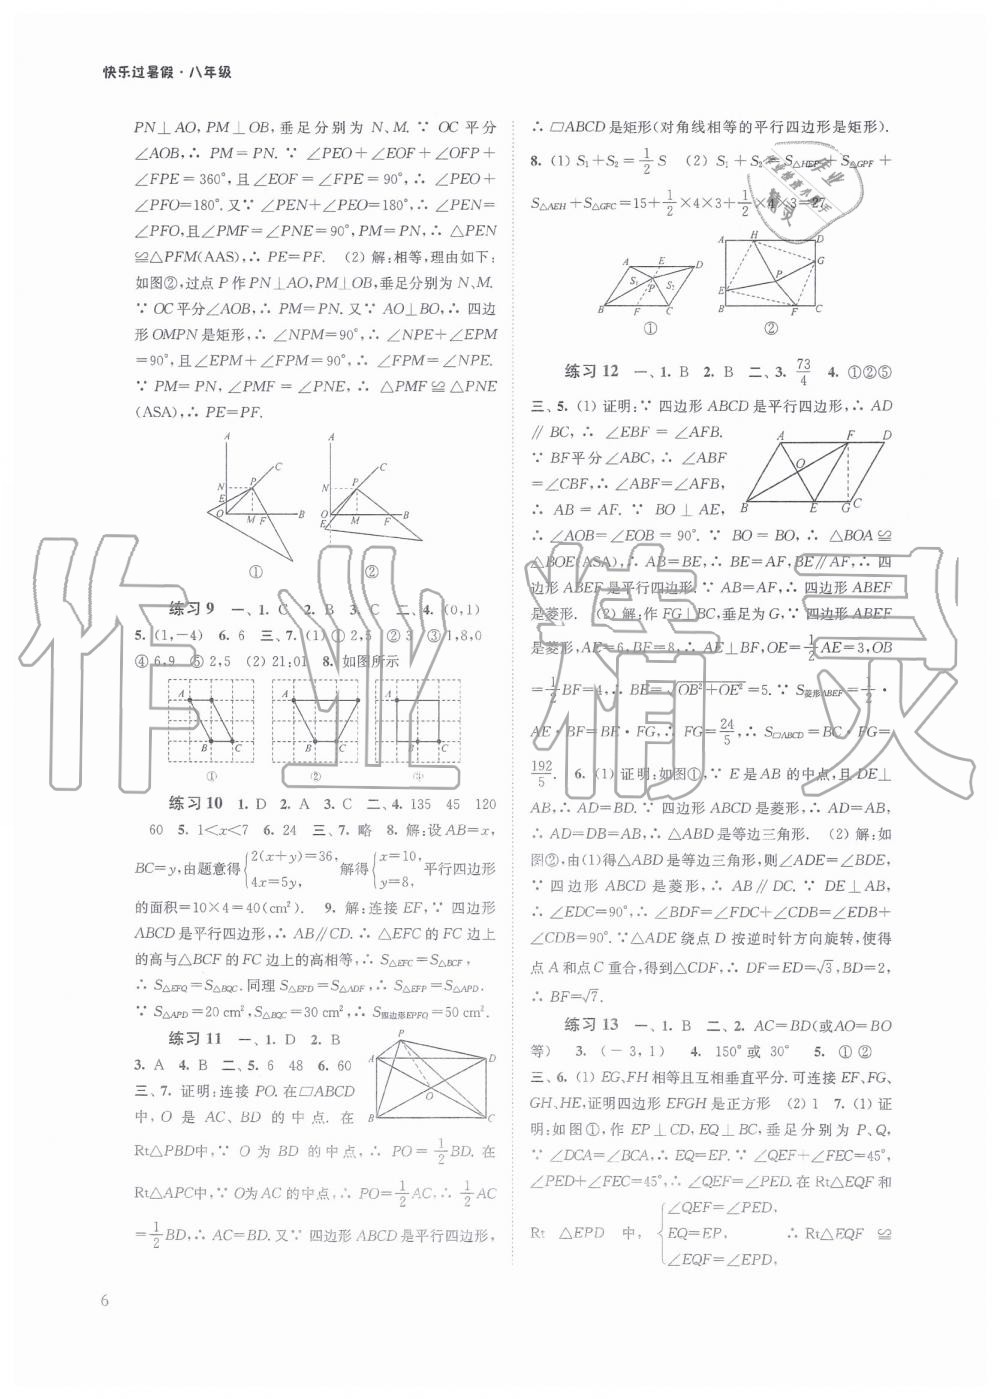 快乐过暑假·八年级
PN⊥AO,PM⊥OB,垂足分别为 N、M.∵ OC 平分
∠AOB,∴ PM=PN.∵ ∠PEO+∠EOF+∠OFP+
∠FPE=360°,且∠EOF=∠FPE=90°,∴ ∠PEO+
∠PFO=180°.又∵ ∠PEN+∠PEO=180°,∴ ∠PEN=
∠PFO,且∠PMF=∠PNE=90°,PM=PN,∴ △PEN
≌△PFM(AAS),∴ PE=PF. (2) 解:相等,理由如下:
如图②,过点 P 作 PN⊥AO,PM⊥OB,垂足分别为 N、M.
∵ OC 平分∠AOB,∴ PM=PN.又∵ AO⊥BO,∴ 四边
形 OMPN 是矩形,∴ ∠NPM=90°,∴ ∠NPE+∠EPM
=90°,且∠EPM+∠FPM=90°,∴ ∠FPM=∠NPE.
∵ PM=PN,∠PMF=∠PNE,∴ △PMF≌△PNE
(ASA),∴ PE=PF.
A C N P E O M F B
A C N P O E M F B
① ②
练习 9 一、1. C 2. B 3. C 二、4. (0,1)
5. (1,-4) 6. 6 三、7. (1) ① 2,5 ② 3 ③ 1,8,0
④ 6,9 ⑤ 2,5 (2) 21:01 8. 如图所示
A B C A B C A B C
① ② ③
练习 10 1. D 2. A 3. C 二、4. 135 45 120
60 5. 1<x<7 6. 24 三、7. 略 8. 解:设 AB=x,
BC=y,由题意得{2(x+y)=36, 4x=5y, 解得{x=10, y=8, 平行四边形
的面积=10×4=40(cm²). 9. 解:连接 EF,∵ 四边形
ABCD 是平行四边形,∴ AB∥CD.∴ △EFC 的 FC 边上
的高与△BCF 的 FC 边上的高相等,∴ S△EFC=S△BCF,
∴ S△EFQ=S△BQC.同理 S△EFD=S△ADF,∴ S△EFP=S△APD.
∵ S△APD=20 cm²,S△BQC=30 cm²,∴ S四边形EPFQ=50 cm².
练习 11 一、1. D 2. B
3. A 4. B 二、5. 6 48 6. 60
三、7. 证明:连接 PO.在▱ABCD
中,O 是 AC、BD 的中点.在
P A D O B C
Rt△PBD中,∵ O 为 BD 的中点,∴ PO=1/2BD.在
Rt△APC中,∵ O为 AC 的中点,∴ PO=1/2AC,∴ 1/2AC
=1/2BD,∴ AC=BD.又∵ 四边形 ABCD 是平行四边形,
∴ ▱ABCD 是矩形(对角线相等的平行四边形是矩形).
8. (1) S₁+S₂=1/2S (2) S₁+S₂=S△HEP+S△GPF+
S△AEH+S△GFC=15+1/2×4×3+1/2×4×3=27
A E D S₁ P S₂ B F C
A H D G P E B F C
① ②
练习 12 一、1. B 2. B 二、3. 73/4 4. ①②⑤
三、5. (1) 证明:∵ 四边形 ABCD 是平行四边形,∴ AD
∥BC,∴ ∠EBF=∠AFB.
∵ BF平分∠ABC,∴ ∠ABF
=∠CBF,∴ ∠ABF=∠AFB,
∴ AB=AF.∵ BO⊥AE,
A F D O B E G C
∴ ∠AOB=∠EOB=90°.∵ BO=BO,∴ △BOA≌
△BOE(ASA),∴ AB=BE,∴ BE=AF,BE∥AF,∴ 四
边形 ABEF 是平行四边形.∵ AB=AF,∴ 四边形 ABEF
是菱形. (2) 解:作 FG⊥BC,垂足为 G,∵ 四边形 ABEF
是菱形,AE=6,BF=8,∴ AE⊥BF,OE=1/2AE=3,OB
=1/2BF=4,∴ BE=√OB²+OE²=5.∵ S菱形ABEF=1/2·
AE·BF=BE·FG,∴ FG=24/5,∴ S▱ABCD=BC·FG=
192/5. 6. (1) 证明:如图①,∵ E 是 AB 的中点,且 DE⊥
AB,∴ AD=BD.∵ 四边形 ABCD 是菱形,∴ AD=AB,
∴ AD=DB=AB,∴ △ABD 是等边三角形. (2) 解:如
图②,由(1)得△ABD 是等边三角形,则∠ADE=∠BDE,
∵ 四边形 ABCD 是菱形,∴ AB∥DC.∵ DE⊥AB,
∴ ∠EDC=90°,∴ ∠BDF=∠FDC+∠CDB=∠EDB+
∠CDB=90°.∵△ADE 绕点 D 按逆时针方向旋转,使得
点 A 和点 C 重合,得到△CDF,∴ DF=ED=√3,BD=2,
∴ BF=√7.
练习 13 一、1. B 二、2. AC=BD(或AO=BO
等) 3. (-3,1) 4. 150° 或 30° 5. ①②
三、6. (1) EG、FH 相等且互相垂直平分.可连接 EF、FG、
GH、HE,证明四边形 EFGH 是正方形 (2) 1 7. (1) 证
明:如图①,作 EP⊥CD,EQ⊥BC,垂足分别为 P、Q,
∵ ∠DCA=∠BCA,∴ EQ=EP.∵ ∠QEF+∠FEC=45°,
∠PED+∠FEC=45°,∴ ∠QEF=∠PED.在 Rt△EQF 和
Rt △EPD 中,{∠QEF=∠PED, EQ=EP, ∠EQF=∠EPD, ∴ Rt△EQF ≌
6
作业精灵